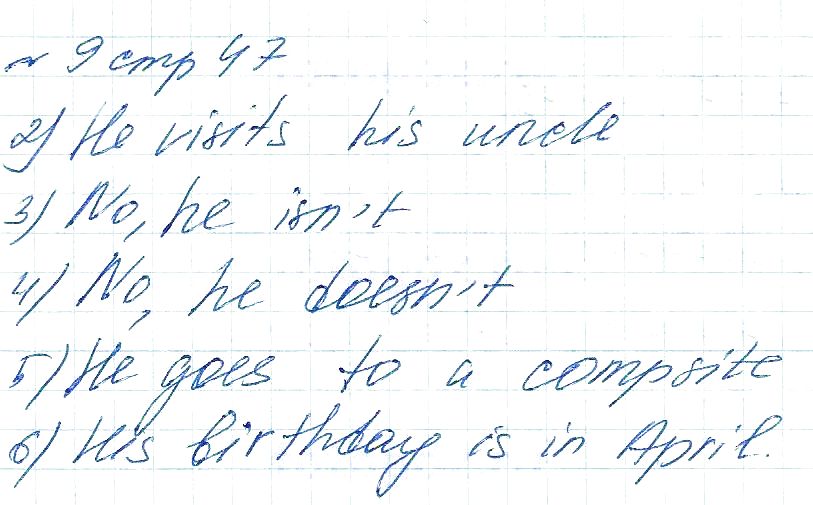 ~ 9 стр 47
2) He visits his uncle
3) No, he isn't
4) No, he doesn't
5) He goes to a compsite
6) His birthday is in April.